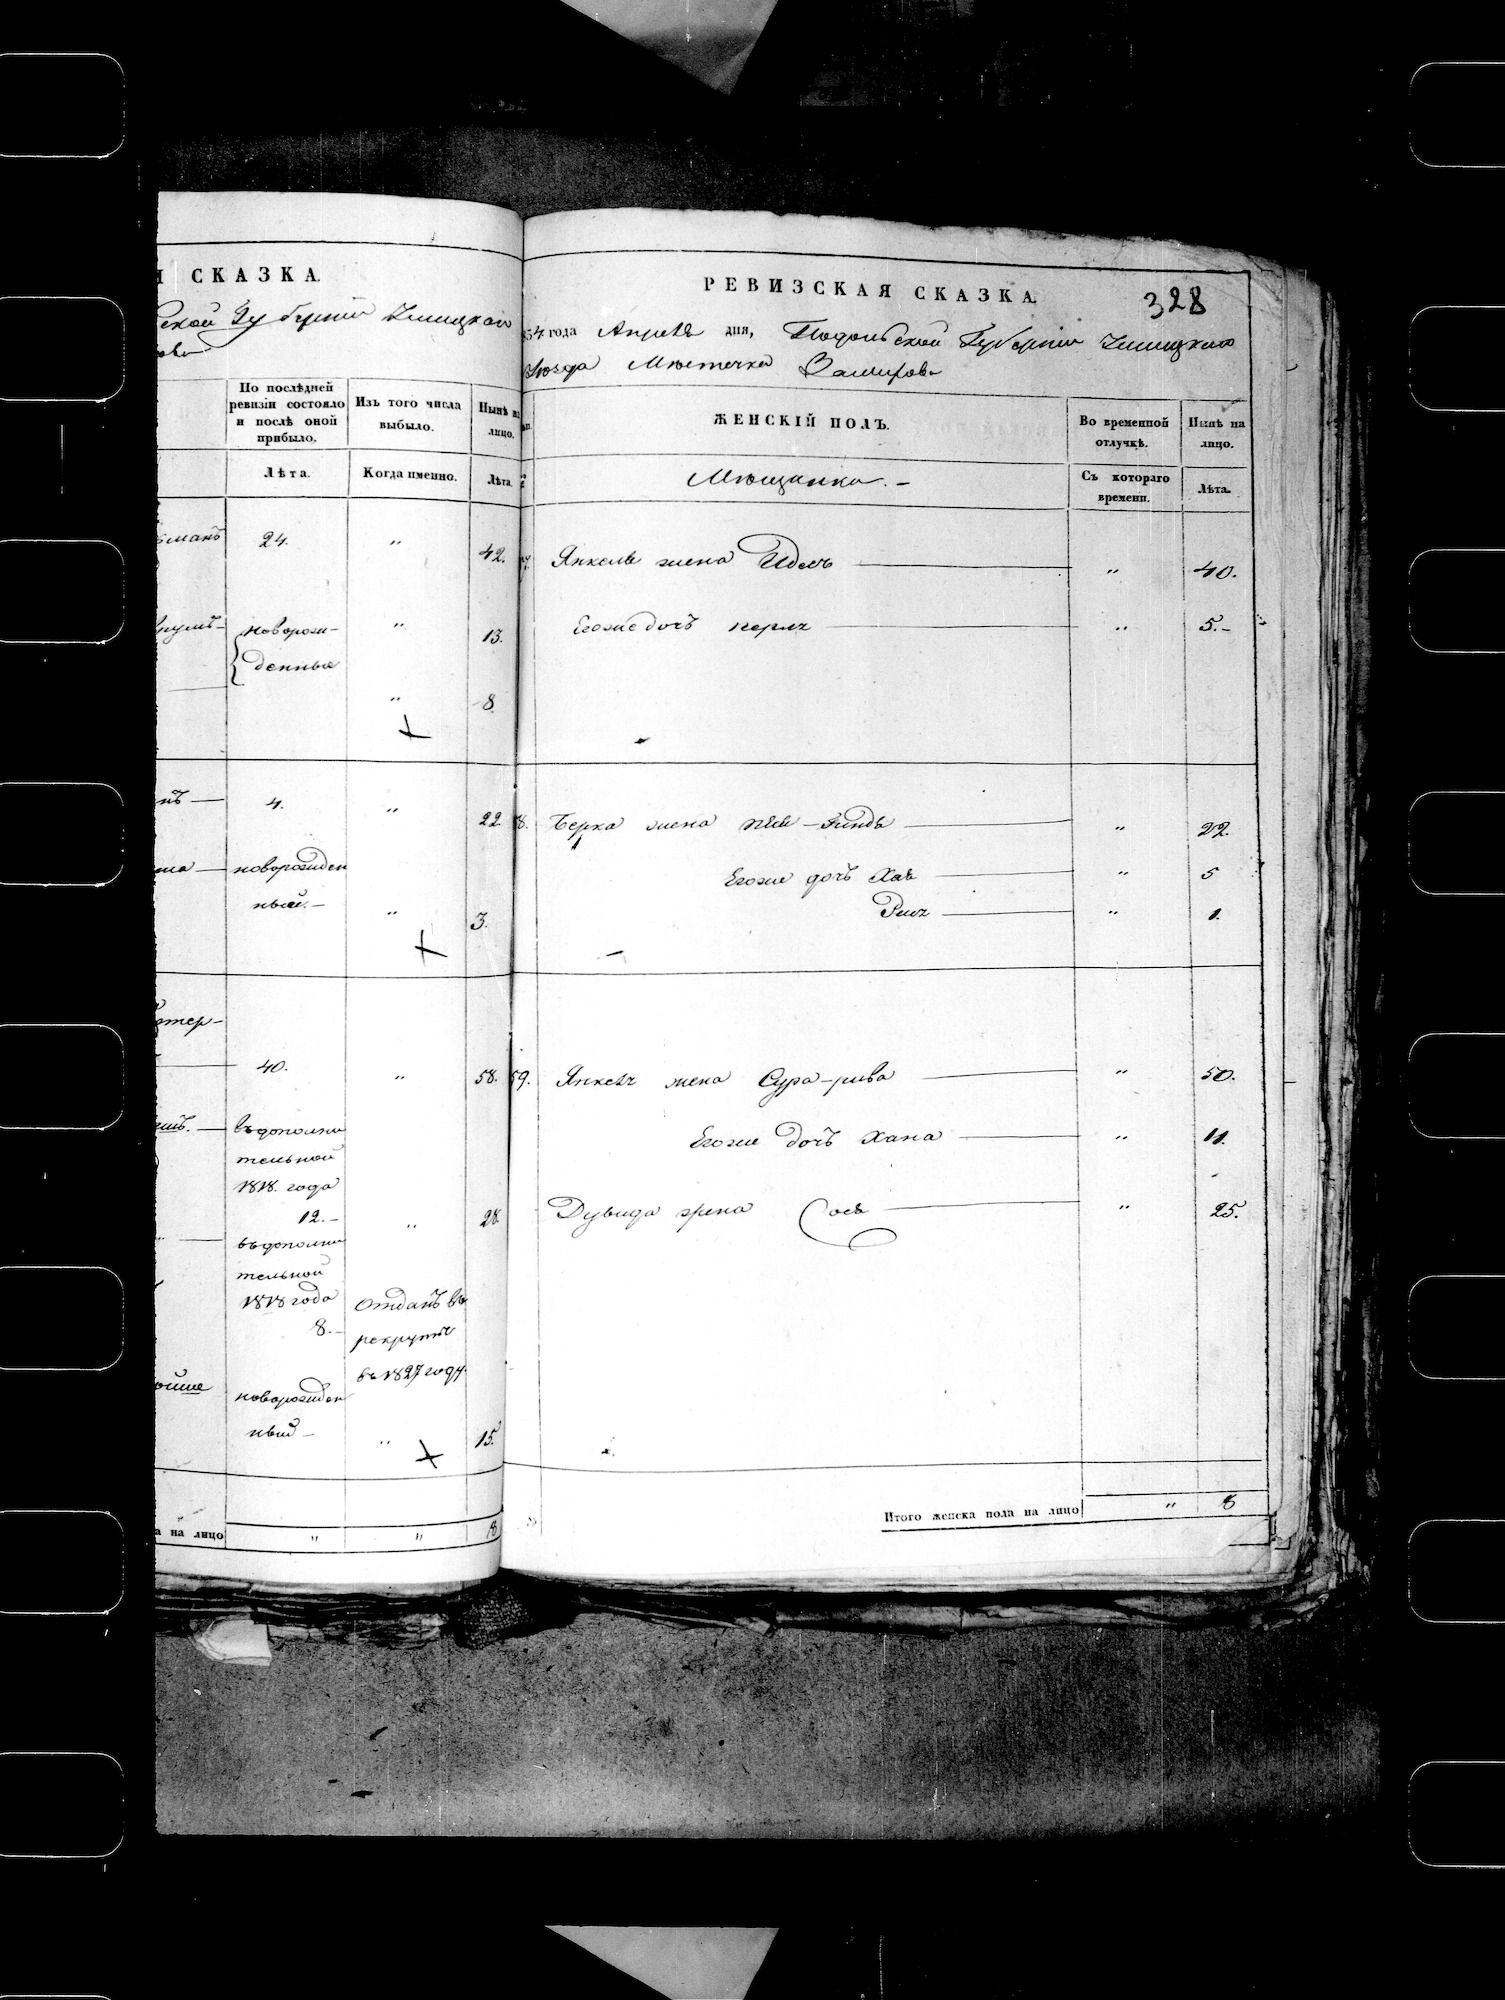 СКАЗКА.
ской Губерніи Ушицкаго
По послѣдней
ревизіи состояло
и послѣ оной
прибыло.
Изъ того числа
выбыло.
Нынѣ на
лицо.
Лѣта.
Когда именно.
Лѣта.
24. " 42.
новорож-
денные
" 13.
" 8.
4. " 22.
новорожден
ный.-
" 3.
40. " 58.
въ дополни
тельной
1818. года
12.- " 28.
въ дополни
тельной
1818 года
8.-
отданъ въ
рекруты
въ 1827 году.
новорожден
ный - " 15.
на лицо " " 8
РЕВИЗСКАЯ СКАЗКА.
328
54 года Апрѣля дня, Подольской Губерніи Ушицкаго
Уѣзда Мѣстечка
ЖЕНСКІЙ ПОЛЪ.
Во временной
отлучкѣ.
Нынѣ на
лицо.
Мѣщанка.-
Съ котораго
времени.
Лѣта.
Янкеля жена " 40.
Егоже дочь Перля " 5.-
8. Берка жена " 22.
Егоже дочь Хая " 5
" 1.
59. Янкеля жена Сура-рива " 50.
Егоже дочь Хана " 11.
Дувида жена Сося " 25.
Итого женска пола на лицо " 8